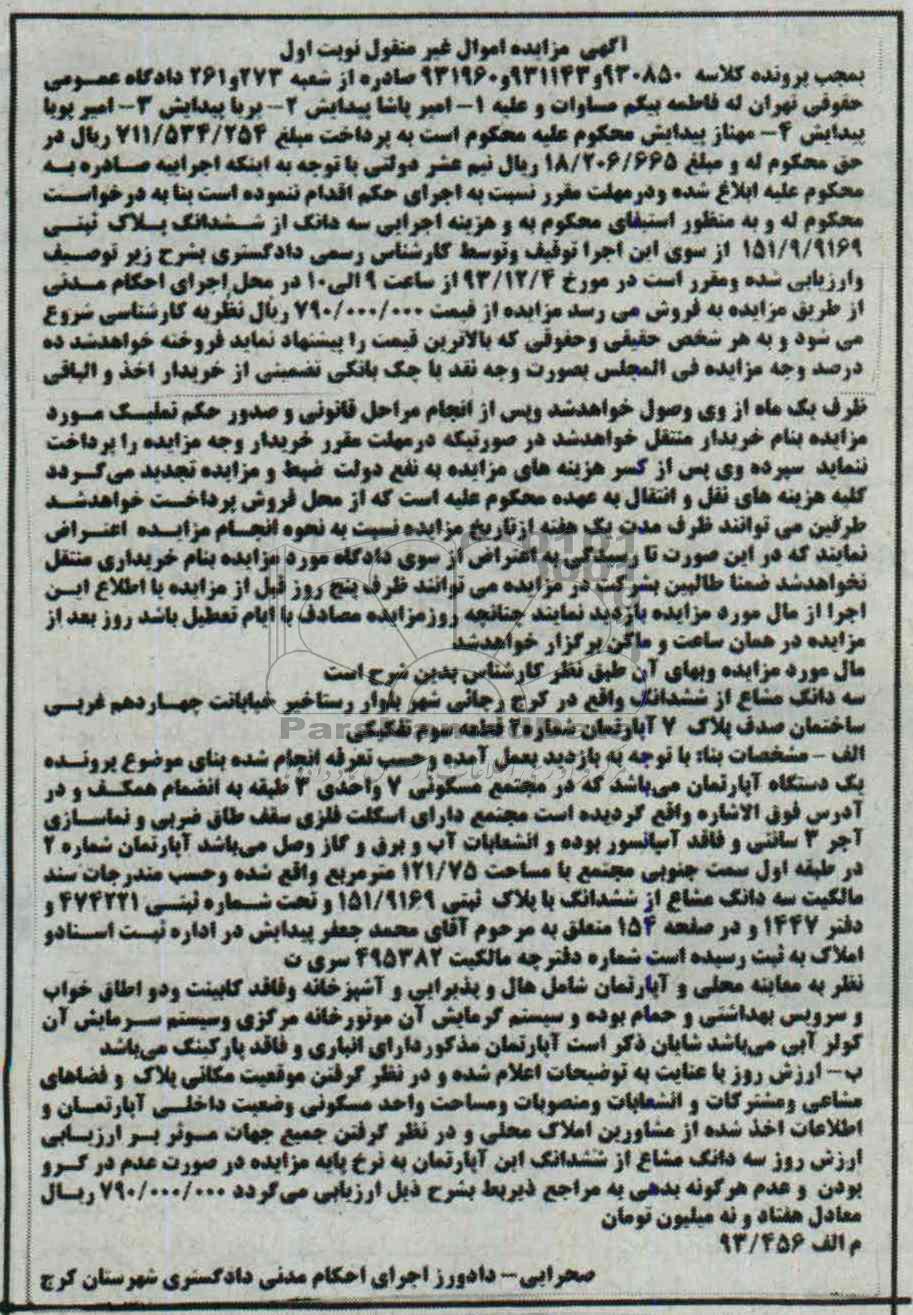 آگهی مزایده اموال غیر منقول نوبت اول
بمجب پرونده کلاسه ۹۳۰۸۵۰و۹۳۱۱۴۳و۹۳۱۹۶۰ صادره از شعبه ۲۷۳و۲۶۱ دادگاه عمومی
حقوقی تهران له فاطمه بیگم مساوات و علیه ۱- امیر پاشا پیدایش ۲- بریا پیدایش ۳- امیر پویا
پیدایش ۴- مهناز پیدایش محکوم علیه محکوم است به پرداخت مبلغ ۷۱۱/۵۳۴/۲۵۴ ریال در
حق محکوم له و مبلغ ۱۸/۲۰۶/۶۶۵ ریال نیم عشر دولتی با توجه به اینکه اجراییه صادره به
محکوم علیه ابلاغ شده ودرمهلت مقرر نسبت به اجرای حکم اقدام ننموده است بنا به درخواست
محکوم له و به منظور استیفای محکوم به و هزینه اجرایی سه دانگ از ششدانگ پلاک ثبتی
۱۵۱/۹/۹۱۶۹ از سوی این اجرا توقیف وتوسط کارشناس رسمی دادگستری بشرح زیر توصیف
وارزیابی شده ومقرر است در مورخ ۹۳/۱۲/۴ از ساعت ۹ الی۱۰ در محل اجرای احکام مدنی
از طریق مزایده به فروش می رسد مزایده از قیمت ۷۹۰/۰۰۰/۰۰۰ ریال نظریه کارشناسی شروع
می شود و به هر شخص حقیقی وحقوقی که بالاترین قیمت را پیشنهاد نماید فروخته خواهدشد ده
درصد وجه مزایده فی المجلس بصورت وجه نقد یا چک بانکی تضمینی از خریدار اخذ و الباقی
ظرف یک ماه از وی وصول خواهدشد وپس از انجام مراحل قانونی و صدور حکم تملیک مورد
مزایده بنام خریدار منتقل خواهدشد در صورتیکه درمهلت مقرر خریدار وجه مزایده را پرداخت
ننماید سپرده وی پس از کسر هزینه های مزایده به نفع دولت ضبط و مزایده تجدید می گردد
کلیه هزینه های نقل و انتقال به عهده محکوم علیه است که از محل فروش پرداخت خواهدشد
طرفین می توانند ظرف مدت یک هفته ازتاریخ مزایده نسبت به نحوه انجام مزایده اعتراض
نمایند که در این صورت تا رسیدگی به اعتراض از سوی دادگاه مورد مزایده بنام خریداری منتقل
نخواهدشد ضمنا طالبین بشرکت در مزایده می توانند ظرف پنج روز قبل از مزایده با اطلاع این
اجرا از مال مورد مزایده بازدید نمایند چنانچه روزمزایده مصادف با ایام تعطیل باشد روز بعد از
مزایده در همان ساعت و ماکن برگزار خواهدشد
مال مورد مزایده وبهای آن طبق نظر کارشناس بدین شرح است
سه دانگ مشاع از ششدانگ واقع در کرج رجائی شهر بلوار رستاخیر خیابانت چهاردهم غربی
ساختمان صدف پلاک ۷ آپارتمان شماره ۲ قطعه سوم تفکیکی
الف - مشخصات بنا: با توجه به بازدید بعمل آمده وحسب تعرفه انجام شده بنای موضوع پرونده
یک دستگاه آپارتمان می‌باشد که در مجتمع مسکونی ۷ واحدی ۳ طبقه به انضمام همکف و در
آدرس فوق الاشاره واقع گردیده است مجتمع دارای اسکلت فلزی سقف طاق ضربی و نماسازی
آجر ۳ سانتی و فاقد آسانسور بوده و انشعابات آب و برق و گاز وصل می‌باشد آپارتمان شماره ۲
در طبقه اول سمت جنوبی مجتمع با مساحت ۱۲۱/۷۵ مترمربع واقع شده وحسب مندرجات سند
مالکیت سه دانگ مشاع از ششدانگ با پلاک ثبتی ۱۵۱/۹۱۶۹ و تحت شماره ثبتی ۴۷۴۲۲۱ و
دفتر ۱۴۴۷ و در صفحه ۱۵۴ متعلق به مرحوم آقای محمد جعفر پیدایش در اداره ثبت اسنادو
املاک به ثبت رسیده است شماره دفترچه مالکیت ۴۹۵۳۸۲ سری ت
نظر به معاینه محلی و آپارتمان شامل هال و پذیرایی و آشپزخانه وفاقد کابینت ودو اطاق خواب
و سرویس بهداشتی و حمام بوده و سیستم گرمایش آن موتورخانه مرکزی وسیستم سرمایش آن
کولر آبی می‌باشد شایان ذکر است آپارتمان مذکوردارای انباری و فاقد پارکینگ می‌باشد
ب- ارزش روز با عنایت به توضیحات اعلام شده و در نظر گرفتن موقعیت مکانی پلاک و فضاهای
مشاعی ومشترکات و انشعابات ومنصوبات ومساحت واحد مسکونی وضعیت داخلی آپارتمان و
اطلاعات اخذ شده از مشاورین املاک محلی و در نظر گرفتن جمیع جهات موثر بر ارزیابی
ارزش روز سه دانگ مشاع از ششدانگ این آپارتمان به نرخ پایه مزایده در صورت عدم در گرو
بودن و عدم هرگونه بدهی به مراجع ذیربط بشرح ذیل ارزیابی می‌گردد ۷۹۰/۰۰۰/۰۰۰ ریال
معادل هفتاد و نه میلیون تومان
م الف ۹۳/۴۵۶
صحرایی- دادورز اجرای احکام مدنی دادگستری شهرستان کرج